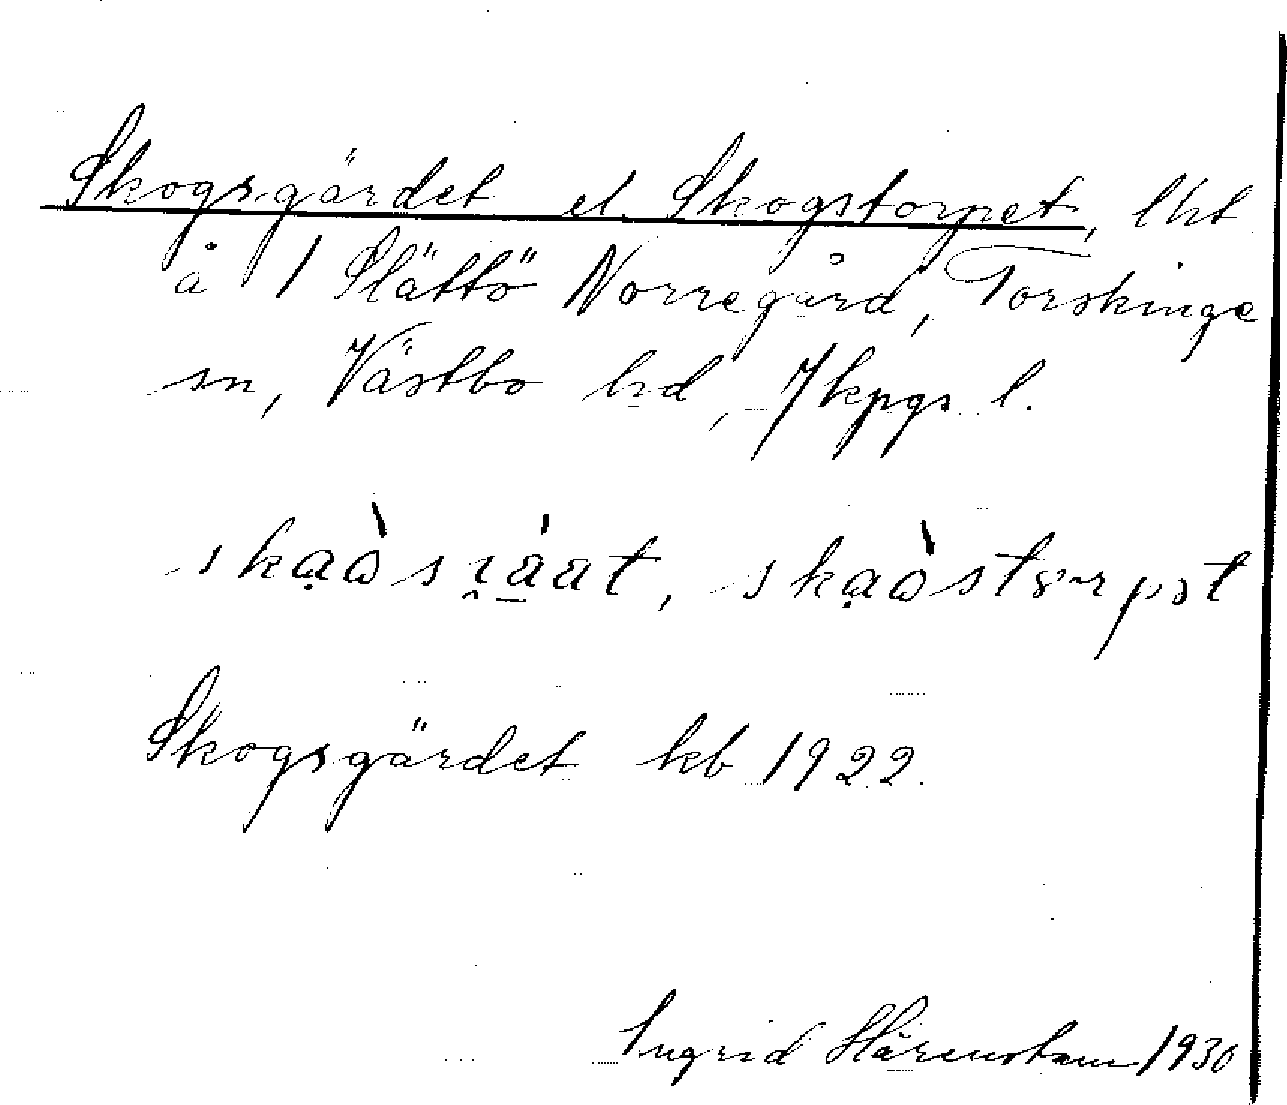 Skogsgärdet el. Skogstorpet, lht
å 1 Slättö Norregård, Torskinge
sn, Västbo hd, Jkpgs l.
Skogsgärdet kb 1922.
Ingrid Härenstam 1930